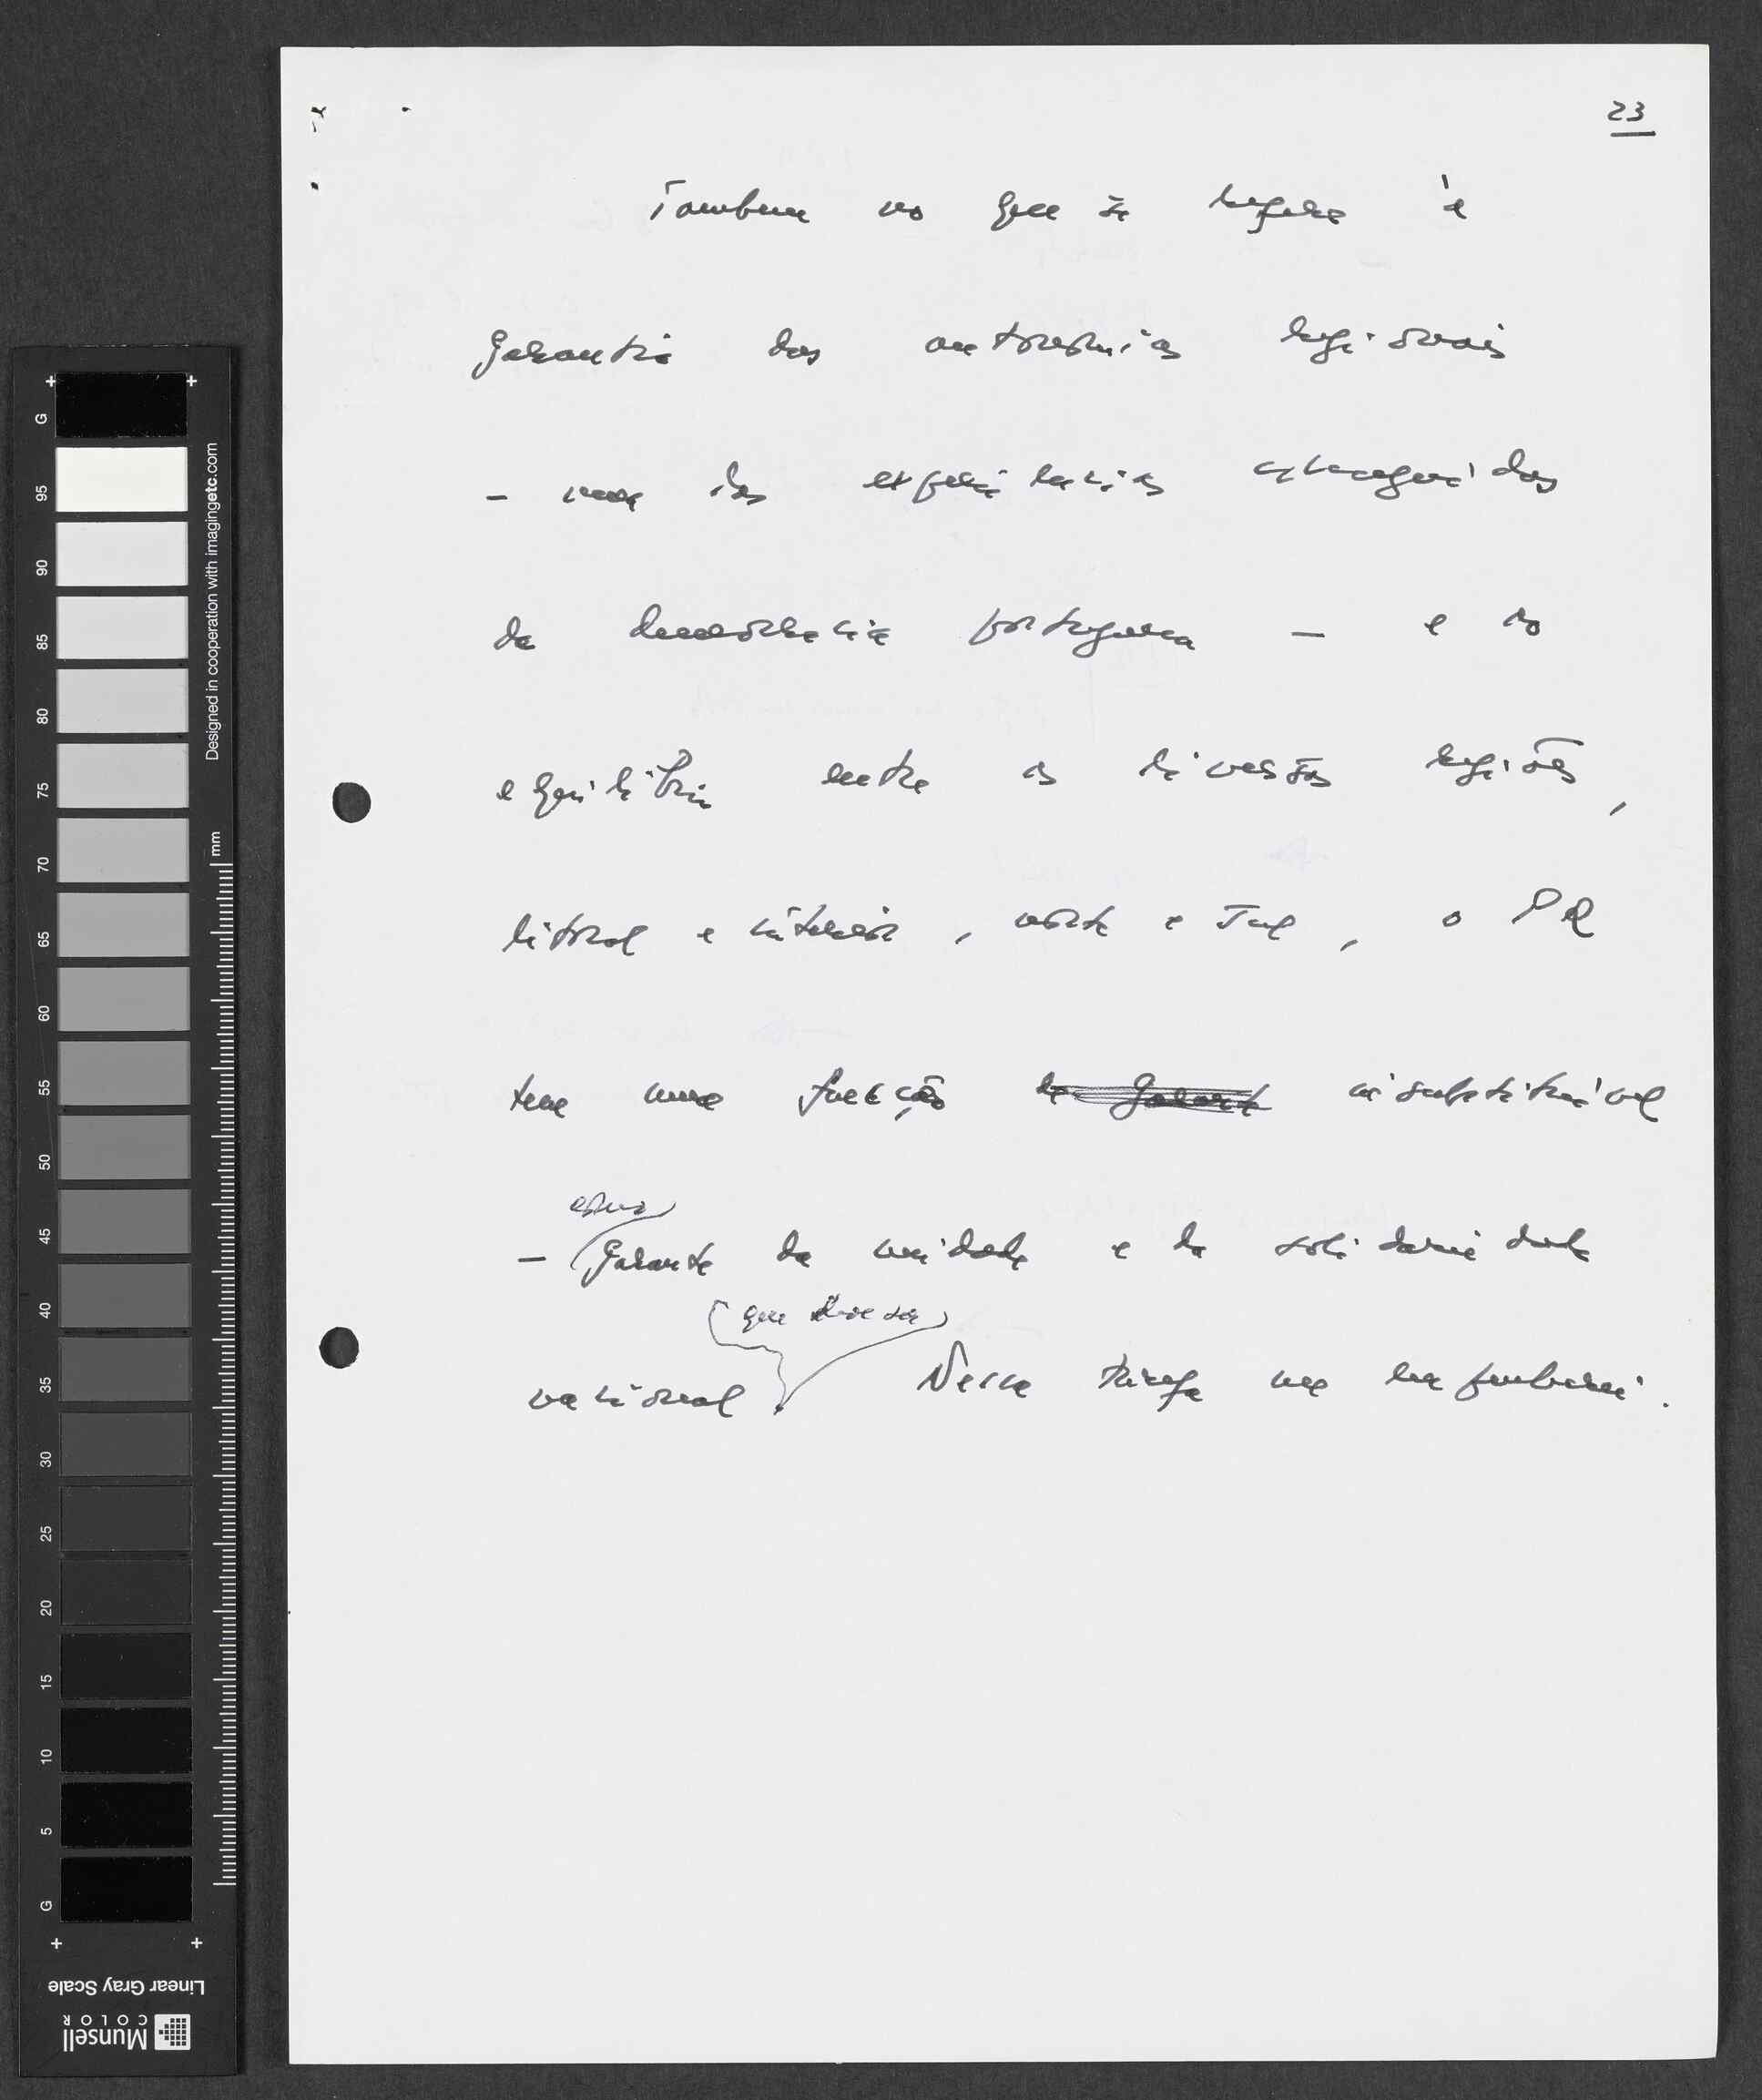 23
Tambem no que se refere à
garantia das autonomias regionais
– uma das experiencias conseguidas
da democracia portuguesa – e ao
equilibrio entre as diversas regiões,
litoral e interior, norte e sul, o PR
tem uma função de garant insubstituível
como
– garante da unidade e da solidariedade
(que deve ser)
nacional. Nessa tarefa me empenharei.
G 95 90 85 80 75 70 65 60 55 50 45 40 35 30 25 20 15 10 5 G
Designed in cooperation with imagingetc.com
mm
Linear Gray Scale
Munsell
COLOR